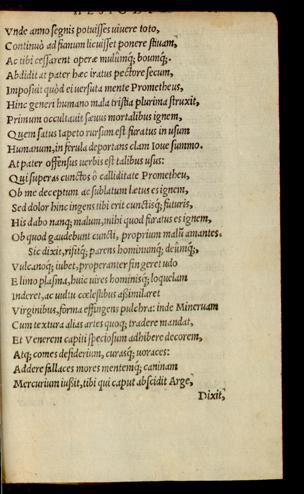 Vnde anno segnis potuisses uiuere toto,
Continuò ad fumum licuisset ponere stiuam,
Ac tibi cessarent operæ mulūmq; boumq;.
Abdidit at pater hæc iratus pectore secum,
Imposuit quòd ei uersuta mente Prometheus,
Hinc generi humano mala tristia plurima struxit,
Primum occultauit sæuus mortalibus ignem,
Quem satus Iapeto rursum est furatus in usum
Humanum, in ferula deportans clam Ioue summo.
At pater offensus uerbis est talibus usus:
Qui superas cunctos ô calliditate Prometheu,
Ob me deceptum ac sublatum lætus es ignem,
Sed dolor hinc ingens tibi erit cunctisq; futuris,
His dabo nanq; malum, mihi quod furatus es ignem,
Ob quod gaudebunt cuncti, proprium malū amantes.
Sic dixit, risitq; parens hominumq; deûmq;,
Vulcanoq; iubet, properanter fingeret udo
E limo plasma, huic uires hominisq; loquelam
Inderet, ac uultu cœlestibus assimilaret
Virginibus, forma effingens pulchra: inde Mineruam
Cum textura alias artes quoq; tradere mandat,
Et Venerem capiti speciosum adhibere decorem,
Atq; comes desiderium, curasq; uoraces:
Addere fallaces mores mentemq; caninam
Mercurium iußit, tibi qui caput abscidit Arge,
Dixit,